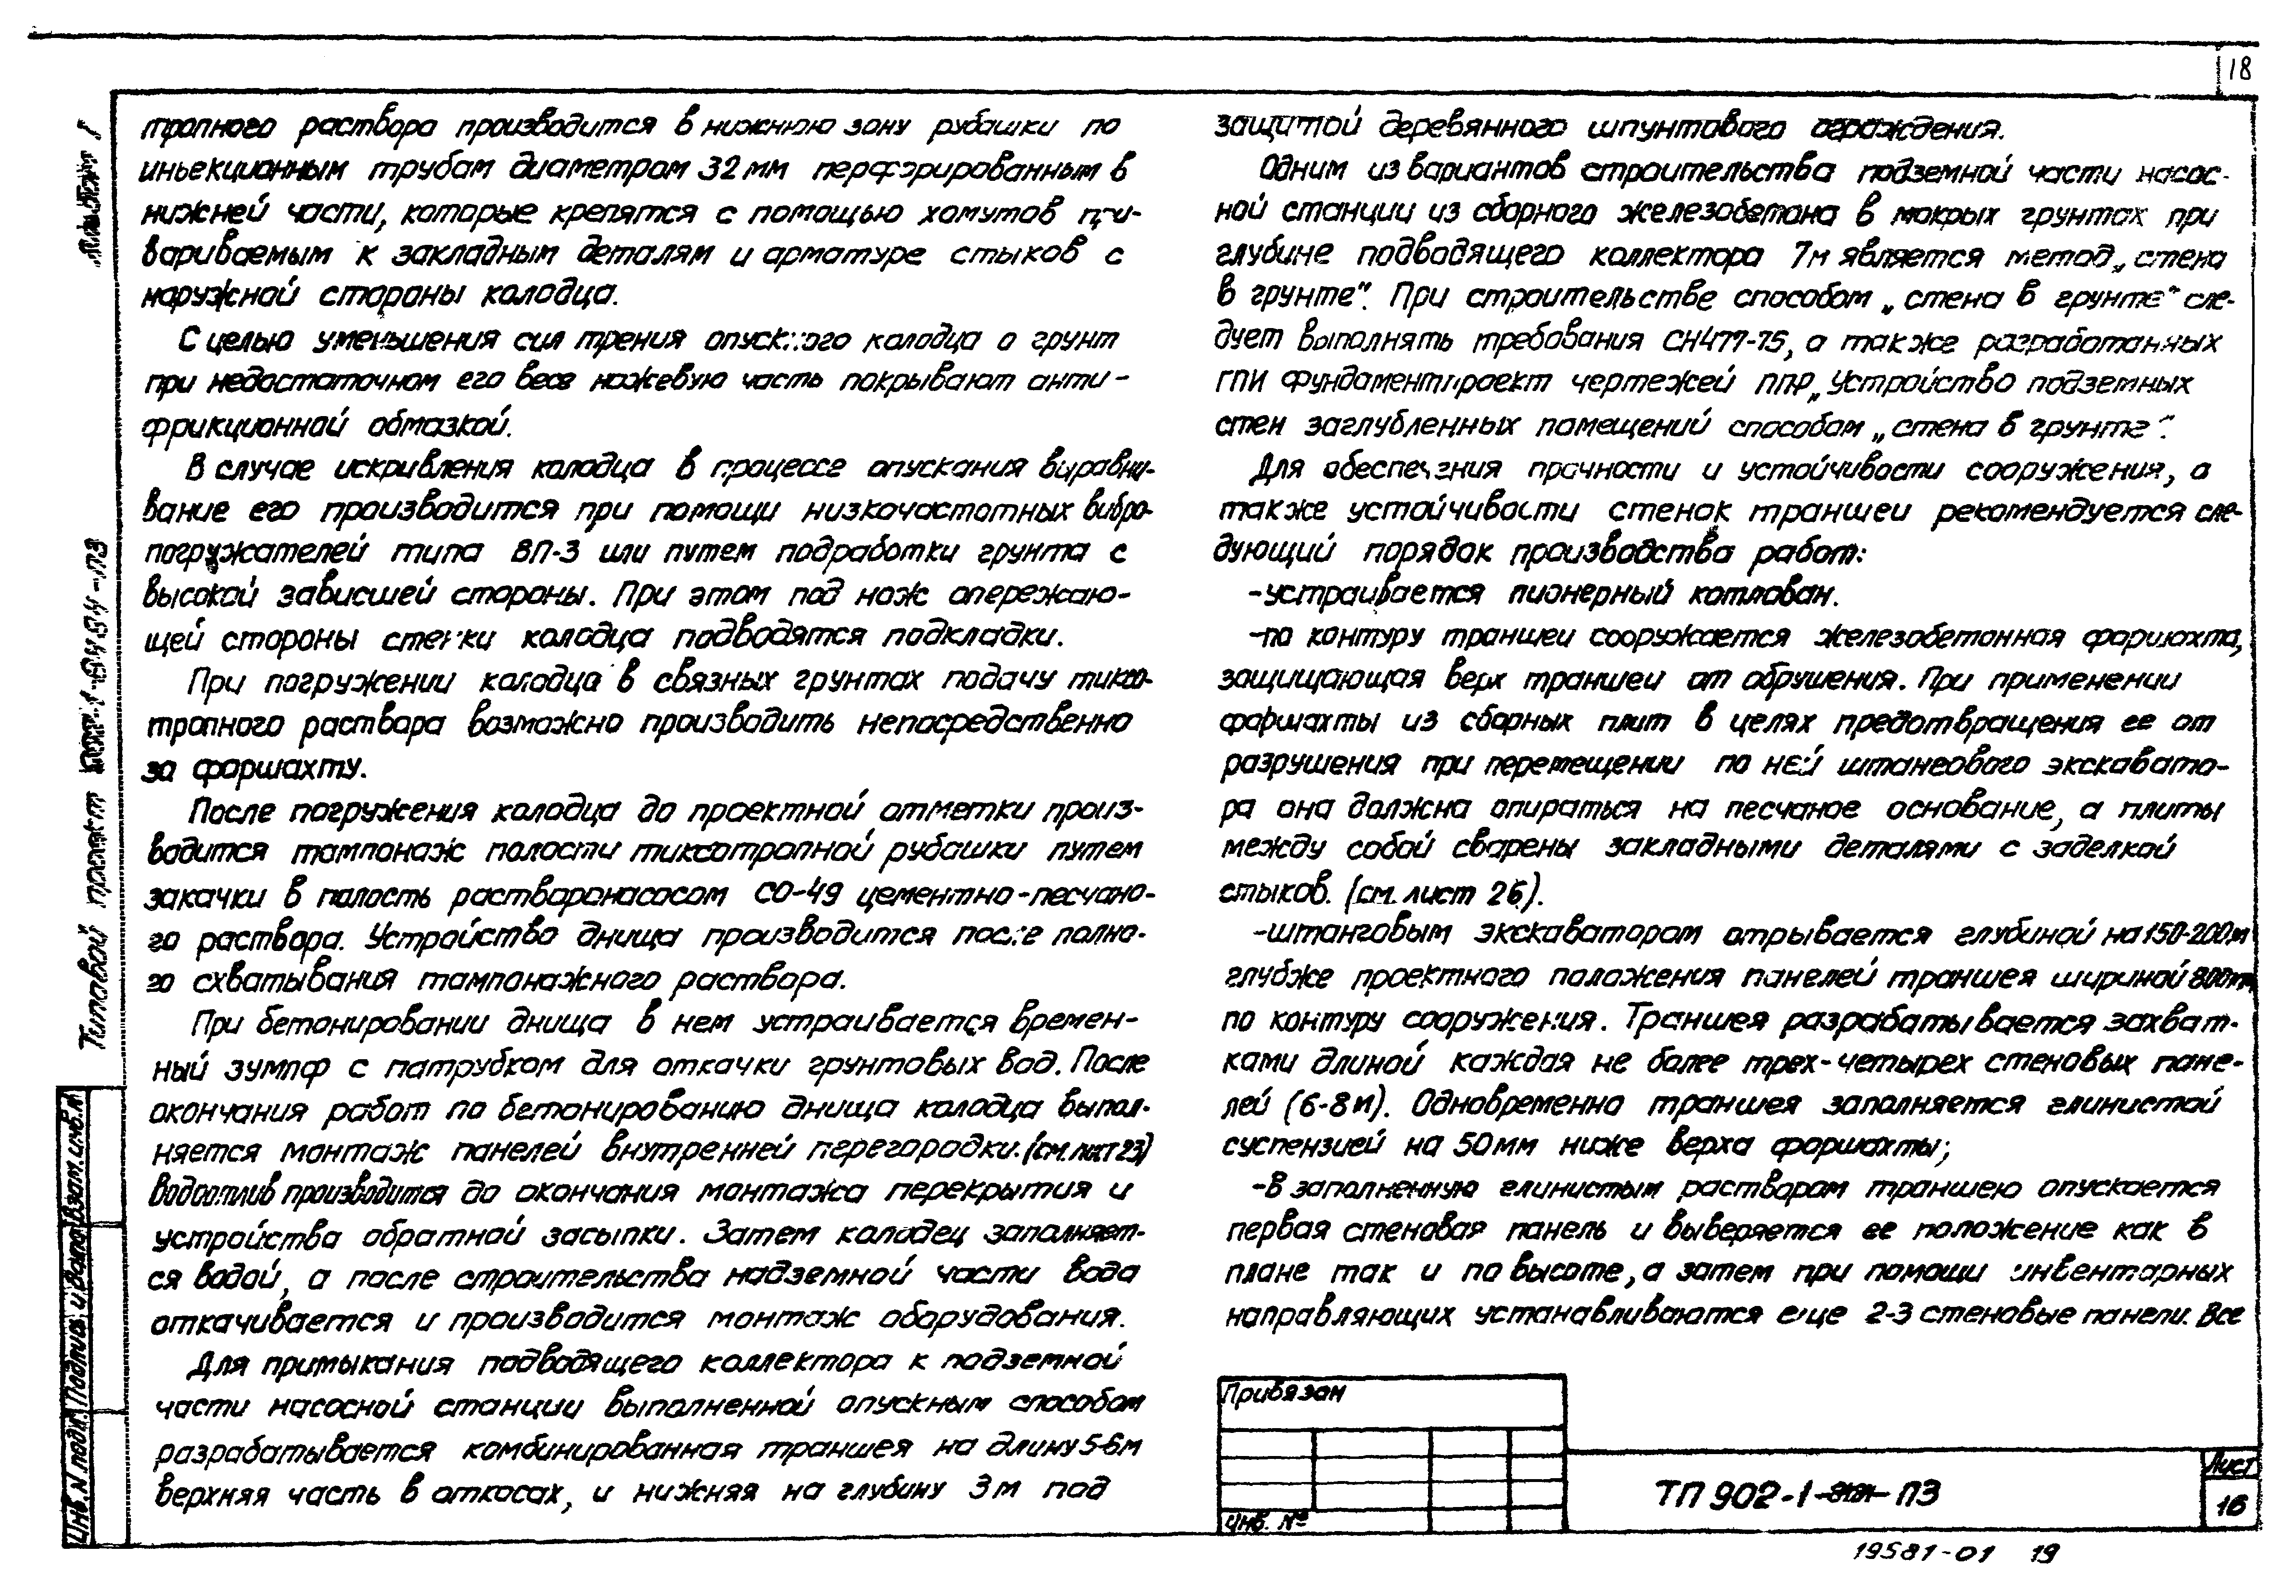 18
тропного раствора производится в нижнюю зону рубашки по
иньекционным трубам диаметром 32 мм перфорированным в
нижней части, которые крепятся с помощью хомутов при-
вариваемым к закладным деталям и арматуре стыков с
наружной стороны колодца.
С целью уменьшения сил трения опускного колодца о грунт
при недостаточном его весе ножевую часть покрывают анти-
фрикционной обмазкой.
В случае искривления колодца в процессе опускания выравни-
вание его производится при помощи низкочастотных вибро-
погружателей типа ВП-3 или путем подработки грунта с
высокой зависшей стороны. При этом под нож опережаю-
щей стороны стенки колодца подводятся подкладки.
При погружении колодца в связных грунтах подачу тиксо-
тропного раствора возможно производить непосредственно
за форшахту.
После погружения колодца до проектной отметки произ-
водится тампонаж полости тиксотропной рубашки путем
закачки в полость растворонасосом СО-49 цементно-песчано-
го раствора. Устройство днища производится после полно-
го схватывания тампонажного раствора.
При бетонировании днища в нем устраивается времен-
ный зумпф с патрубком для откачки грунтовых вод. После
окончания работ по бетонированию днища колодца выпол-
няется монтаж панелей внутренней перегородки. (см. лист 23)
Водоотлив производится до окончания монтажа перекрытия и
устройства обратной засыпки. Затем колодец заполняет-
ся водой, а после строительства надземной части вода
откачивается и производится монтаж оборудования.
Для примыкания подводящего коллектора к подземной
части насосной станции выполненной опускным способом
разрабатывается комбинированная траншея на длину 5-6м
верхняя часть в откосах, и нижняя на глубину 3м под
защитой деревянного шпунтового ограждения.
Одним из вариантов строительства подземной части насос-
ной станции из сборного железобетона в мокрых грунтах при
глубине подводящего коллектора 7м является метод „стена
в грунте". При строительстве способом „стена в грунте" сле-
дует выполнять требования СН477-75, а также разработанных
ГПИ Фундаментпроект чертежей ППР „Устройство подземных
стен заглубленных помещений способом „стена в грунте".
Для обеспечения прочности и устойчивости сооружения, а
также устойчивости стенок траншеи рекомендуется сле-
дующий порядок производства работ:
-устраивается пионерный котлован.
-по контуру траншеи сооружается железобетонная форшахта,
защищающая верх траншеи от обрушения. При применении
форшахты из сборных плит в целях предотвращения ее от
разрушения при перемещении по ней штангового экскавато-
ра она должна опираться на песчаное основание, а плиты
между собой сварены закладными деталями с заделкой
стыков. (см. лист 26).
-штанговым экскаватором отрывается глубиной на 150-200м
глубже проектного положения панелей траншея шириной 800мм
по контуру сооружения. Траншея разрабатывается захват-
ками длиной каждая не более трех-четырех стеновых пане-
лей (6-8м). Одновременно траншея заполняется глинистой
суспензией на 50мм ниже верха форшахты;
-В заполненную глинистым раствором траншею опускается
первая стеновая панель и выверяется ее положение как в
плане так и по высоте, а затем при помощи инвентарных
направляющих устанавливаются еще 2-3 стеновые панели. Все
Альбом I
Типовой проект
Взам. инв. №
Подпись и дата
Инв. № подл.
Привязан
Инв. №
ТП 902-1- ПЗ
Лист
16
19581-01 19